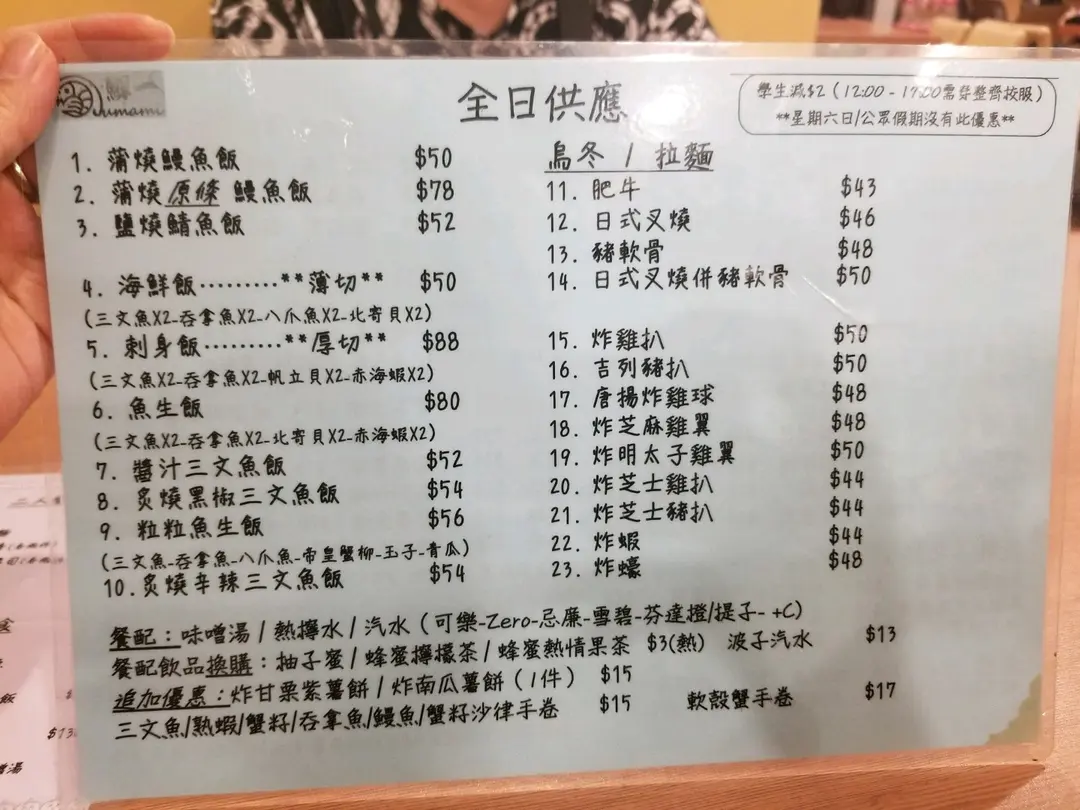 鰤一
Uumami
全日供應
學生減$2（12:00 - 17:00需穿整齊校服）
**星期六日/公眾假期沒有此優惠**
1. 蒲燒鰻魚飯 $50
2. 蒲燒原條 鰻魚飯 $78
3. 鹽燒鯖魚飯 $52
4. 海鮮飯.........**薄切** $50
(三文魚X2-吞拿魚X2-八爪魚X2-北寄貝X2)
5. 刺身飯.........**厚切** $88
(三文魚X2-吞拿魚X2-帆立貝X2-赤海蝦X2)
6. 魚生飯 $80
(三文魚X2-吞拿魚X2-北寄貝X2-赤海蝦X2)
7. 醬汁三文魚飯 $52
8. 炙燒黑椒三文魚飯 $54
9. 粒粒魚生飯 $56
(三文魚-吞拿魚-八爪魚-帝皇蟹柳-玉子-青瓜)
10.炙燒辛辣三文魚飯 $54
烏冬 / 拉麵
11. 肥牛 $43
12. 日式叉燒 $46
13. 豬軟骨 $48
14. 日式叉燒併豬軟骨 $50
15. 炸雞扒 $50
16. 吉列豬扒 $50
17. 唐揚炸雞球 $48
18. 炸芝麻雞翼 $48
19. 炸明太子雞翼 $50
20. 炸芝士雞扒 $44
21. 炸芝士豬扒 $44
22. 炸蝦 $44
23. 炸蠔 $48
餐配：味噌湯 / 熱檸水 / 汽水（可樂-Zero-忌廉-雪碧-芬達橙/提子- +C）
餐配飲品換購：柚子蜜 / 蜂蜜檸檬茶 / 蜂蜜熱情果茶 $3(熱) 波子汽水 $13
追加優惠：炸甘栗紫薯餅 / 炸南瓜薯餅（1件） $15
三文魚/熟蝦/蟹籽/吞拿魚/鰻魚/蟹籽沙律手卷 $15 軟殼蟹手卷 $17
二人
飯
$13
湯